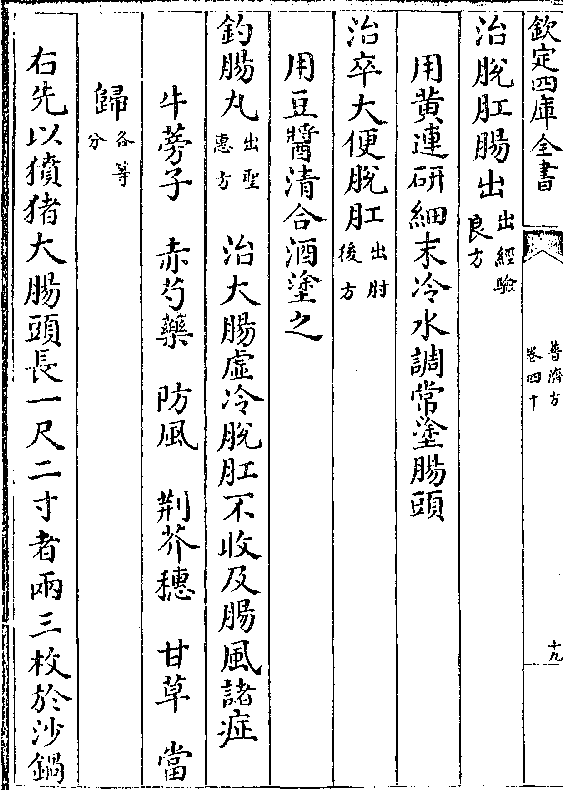 欽定四庫全書
普濟方
卷四十
十九
治脫肛腸出出經驗良方
用黄連研細末冷水調常塗腸頭
治卒大便脫肛出肘後方
用豆醬清合酒塗之
釣腸丸出聖惠方 治大腸虛冷脫肛不收及腸風諸症
牛蒡子 赤芍藥 防風 荆芥穗 甘草 當
歸各等分
右先以獖猪大腸頭長一尺二寸者兩三枚於沙鍋